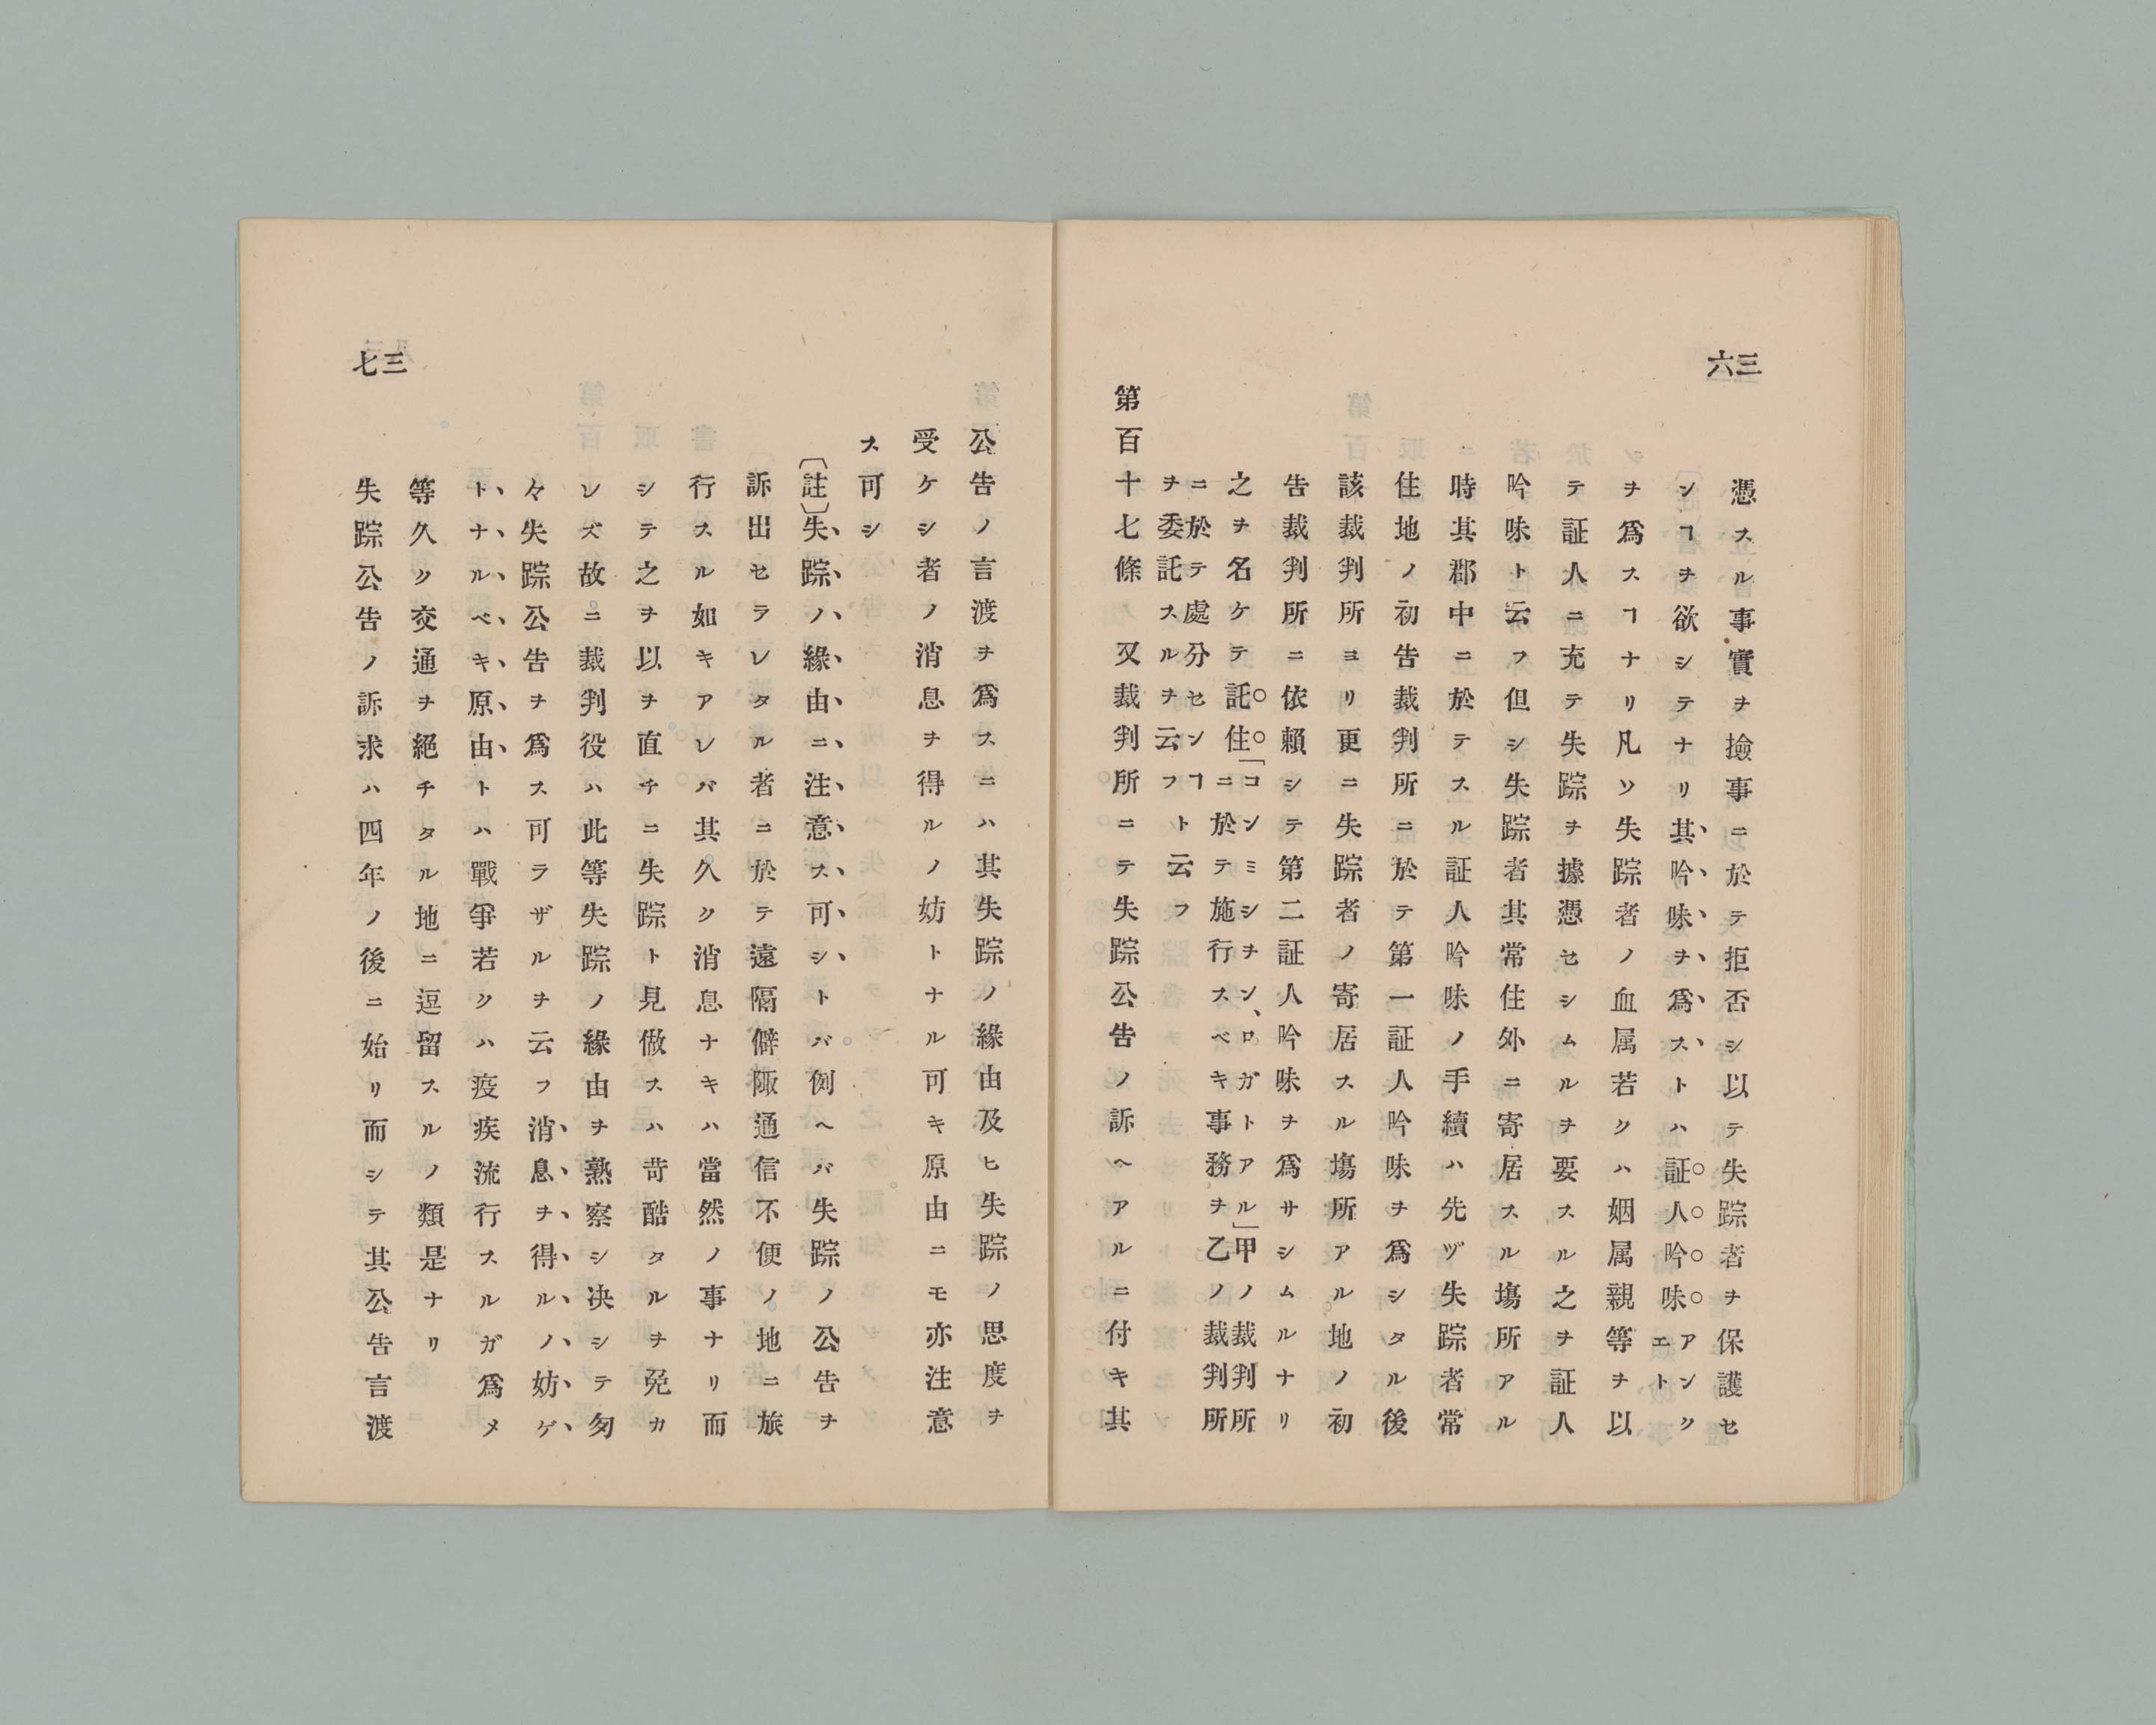 三六
憑スル事實ヲ撿事ニ於テ拒否シ以テ失踪者ヲ保護セ
ンヿヲ欲シテナリ其吟味ヲ爲ストハ証人吟味アンクエト
ヲ爲スヿナリ凡ソ失踪者ノ血属若クハ姻属親等ヲ以
テ証人ニ充テ失踪ヲ據憑セシムルヲ要スル之ヲ証人
吟味ト云フ但シ失踪者其常住外ニ寄居スル塲所アル
時其郡中ニ於テスル証人吟味ノ手續ハ先ヅ失踪者常
住地ノ初告裁判所ニ於テ第一証人吟味ヲ爲シタル後
該裁判所ヨリ更ニ失踪者ノ寄居スル塲所アル地ノ初
告裁判所ニ依賴シテ第二証人吟味ヲ爲サシムルナリ
之ヲ名ケテ託住「コンミシヲン、ロガトアル」甲ノ裁判所
ニ於テ施行スベキ事務ヲ乙ノ裁判所
ニ於テ處分センヿ
ヲ委託スルヲ云フト云フ
第百十七條 又裁判所ニテ失踪公告ノ訴ヘアルニ付キ其
三七
公告ノ言渡ヲ爲スニハ其失踪ノ緣由及ヒ失踪ノ思度ヲ
受ケシ者ノ消息ヲ得ルノ妨トナル可キ原由ニモ亦注意
ス可シ
〔註〕失踪ノ緣由ニ注意ス可シトバ例ヘバ失踪ノ公告ヲ
訴出セラレタル者ニ於テ遠隔僻陬通信不便ノ地ニ旅
行スル如キアレバ其久ク消息ナキハ當然ノ事ナリ而
シテ之ヲ以ヲ直チニ失踪ト見做スハ苛酷タルヲ免カ
レズ故ニ裁判役ハ此等失踪ノ緣由ヲ熟察シ决シテ匆
々失踪公告ヲ爲ス可ラザルヲ云フ消息ヲ得ルノ妨ゲ
トナルベキ原由トハ戰爭若クハ疫疾流行スルガ爲メ
等久ク交通ヲ絕チタル地ニ逗留スルノ類是ナリ
失踪公告ノ訴求ハ四年ノ後ニ始リ而シテ其公告言渡